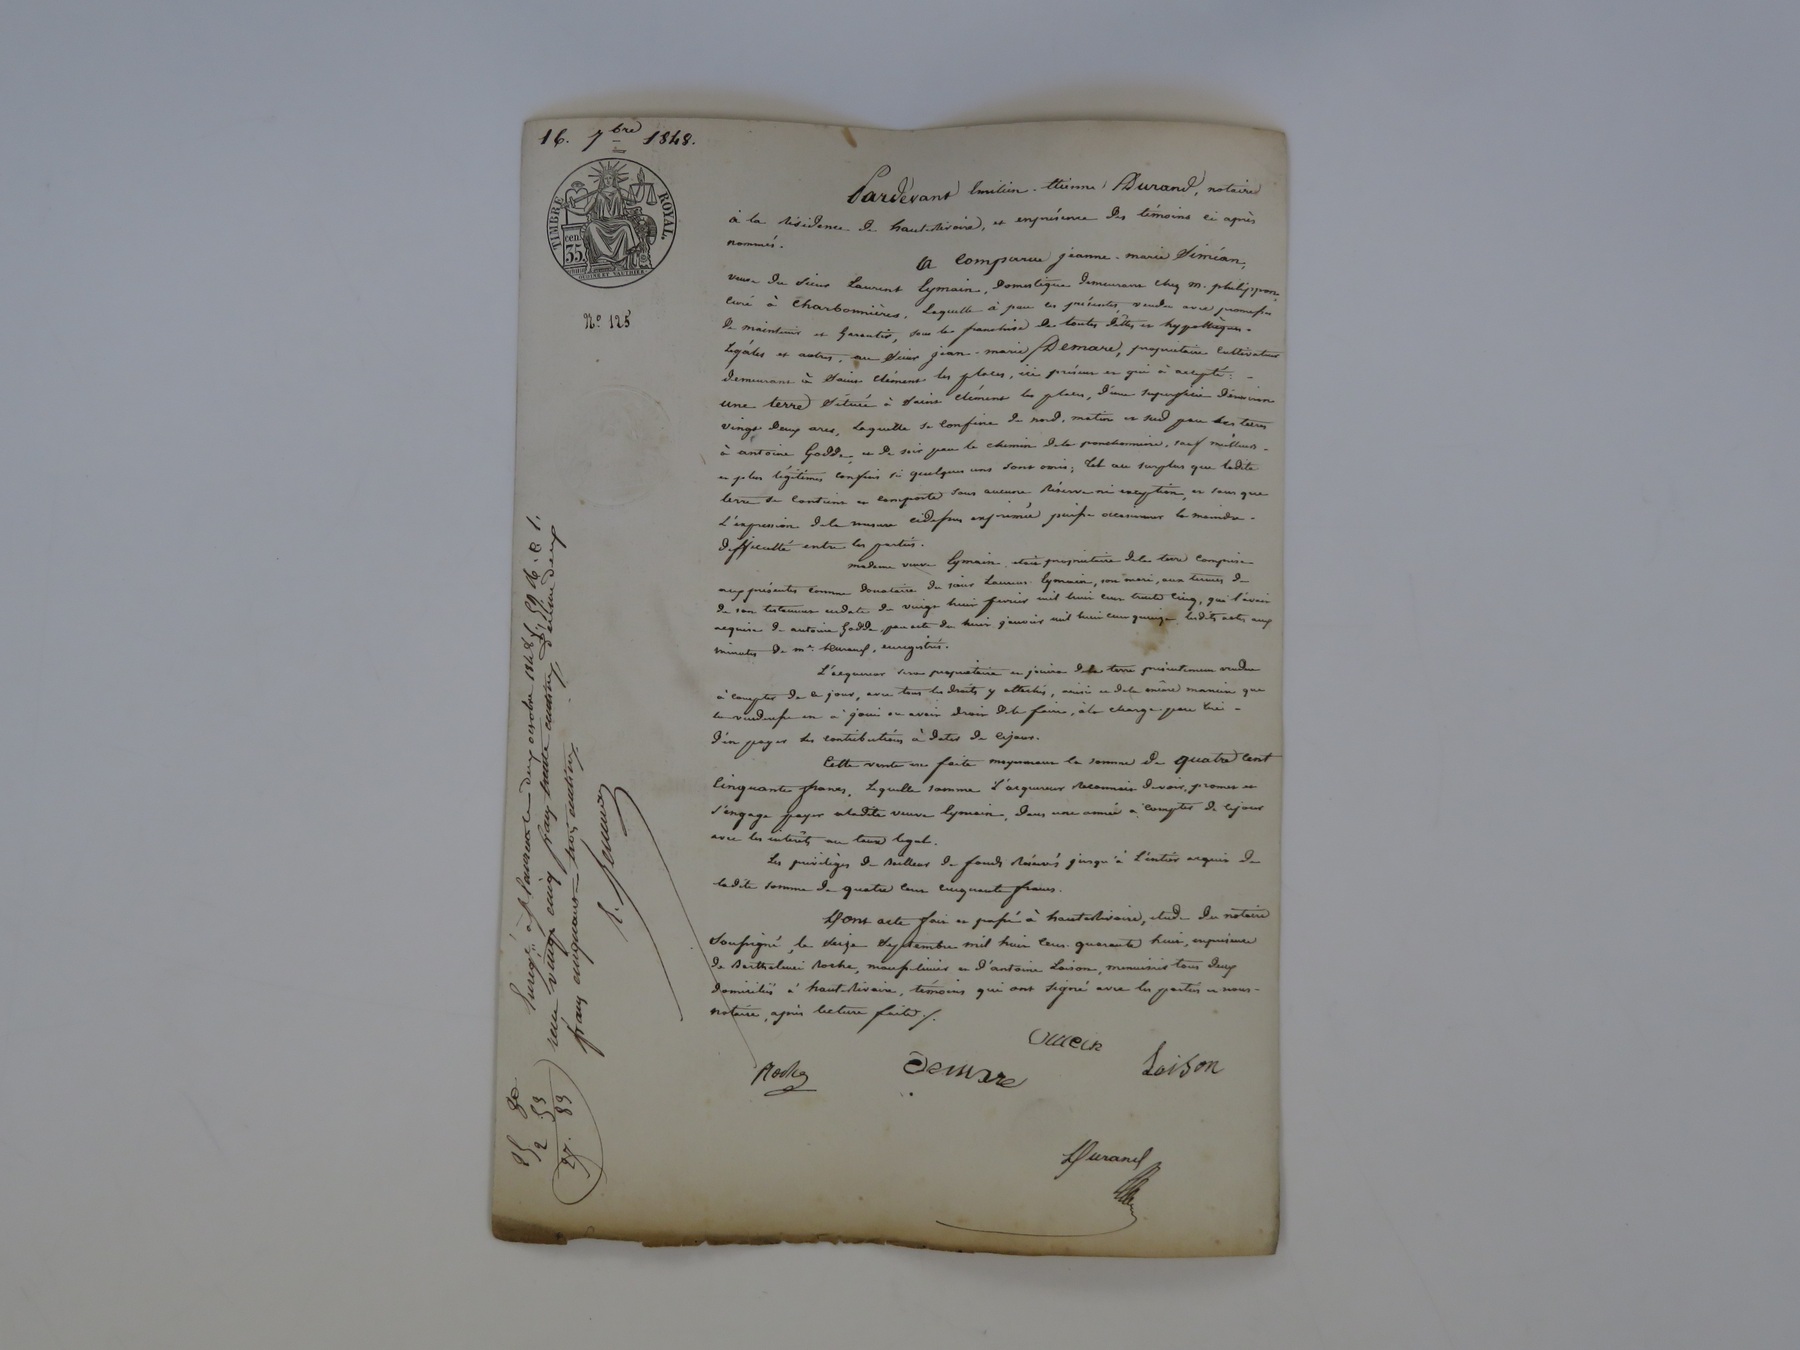 16. 7bre 1848.
TIMBRE ROYAL.
cen. 35
No 125
Pardevant Emilien-Etienne Durand, notaire
à la résidence de haut-Rivoire, et en présence des témoins ci après
nommés.
A Comparu jeanne-marie Siméan,
veuve du Sieur Laurent Eymain, domestique demeurant chez m. philippon
curé à Charbonnières, Laquelle à par ces présentes, vendu avec promesse
de maintenir et Garantir, sous la franchise de toutes dettes et hypothèques
Légales et autres, au Sieur jean-marie Demare, propriétaire Cultivateur
demeurant à Saint Clément les places, ici présent et qui à accepté:
une terre Située à Saint Clément les places, d'une superficie d'environ
vingt deux ares, Laquelle se confine de nord, matin et sud par les terres
à antoine Godde, et de soir par le chemin de la ponchonnière, sauf meilleurs
et plus légitimes confins si quelques uns sont omis; Tel au surplus que ladite
terre se Contient et comporte sans aucune Réserve ni exception, et sans que
L'expression de la mesure cidessus exprimée puisse occasionner la moindre
difficulté entre les parties.
madame veuve Eymain était propriétaire de la terre comprise
aux présentes comme donataire du sieur Laurent Eymain, son mari, aux termes de
de son testament en date du vingt huit février mil huit cent trente cinq, qui l'avait
acquise de antoine Godde, par acte du huit janvier mil huit cent quinze lesdits actes aux
minutes de me Durand, enregistrés.
L'acquéreur sera propriétaire et jouira de la terre présentement vendue
à compter de ce jour, avec tous les droits y attachés, ainsi et de la même manière que
la venderesse en a joui ou avait droit de le faire, à la charge par lui
d'en payer les contributions à dater de cejour.
Cette vente est faite moyennant la somme de quatre cent
Cinquante francs, Laquelle somme L'acquéreur Reconnait devoir, promet et
s'engage payer à ladite veuve Eymain, dans une année à compter de cejour
avec les intérêts au taux légal.
Les privilèges de Bailleur de fonds Réservés jusqu'à L'entier acquis de
ladite somme de quatre cent cinquante francs.
Dont acte fait et passé à haut-Rivoire, étude du notaire
Soussigné, le Seize Septembre mil huit cent quarante huit, en présence
de Barthelemi Roche, et d'antoine Loison, menuisier tous deux
domiciliés à haut-Rivoire, témoins qui ont signé avec les parties et nous
notaire, après lecture faite./.
Roche Demare Loison
Durand
Enregé à St Laurent le deux octobre 1848
reçu vingt cinq francs
francs cinquante trois centimes
25 30
2 53
27. 83